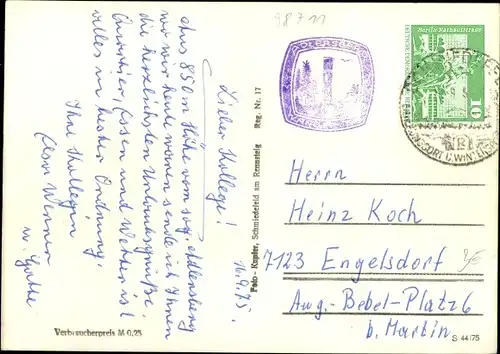 98711
16.9.75.
Lieber Kollege!
Aus 850 m Höhe vom sog. Adlersberg
wo wir heute waren sende ich Ihnen
die herzlichsten Urlaubsgrüße.
Quartier, Essen und Wetter ist
alles in bester Ordnung.
Ihre Kollegin
Werner
u. Gatte
Verbraucherpreis M 0,25
Foto-Kupfer, Schmiedefeld am Rennsteig Reg. Nr. 17
ADLERSBERG
Berlin Neptunbrunnen
10
Herrn
Heinz Koch
7123 Engelsdorf
Aug.-Bebel-Platz 6
b. Martin
S 44/75